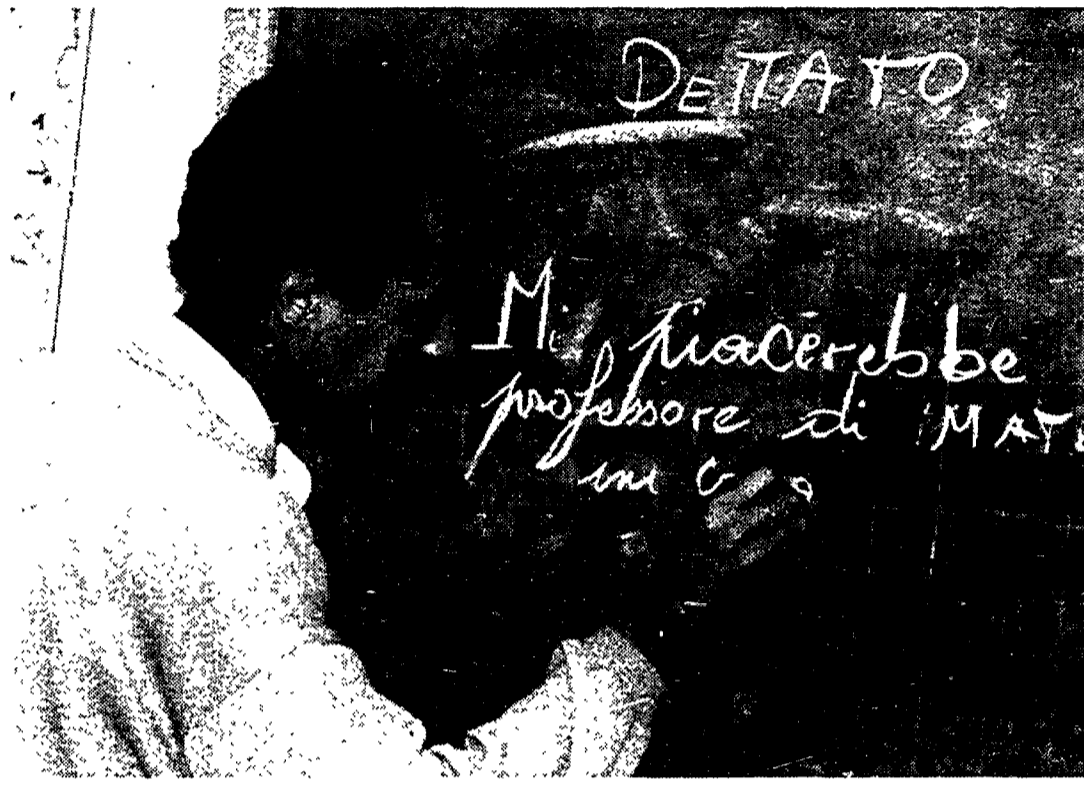 DETTATO
Mi piacerebbe
professore di MATE
in